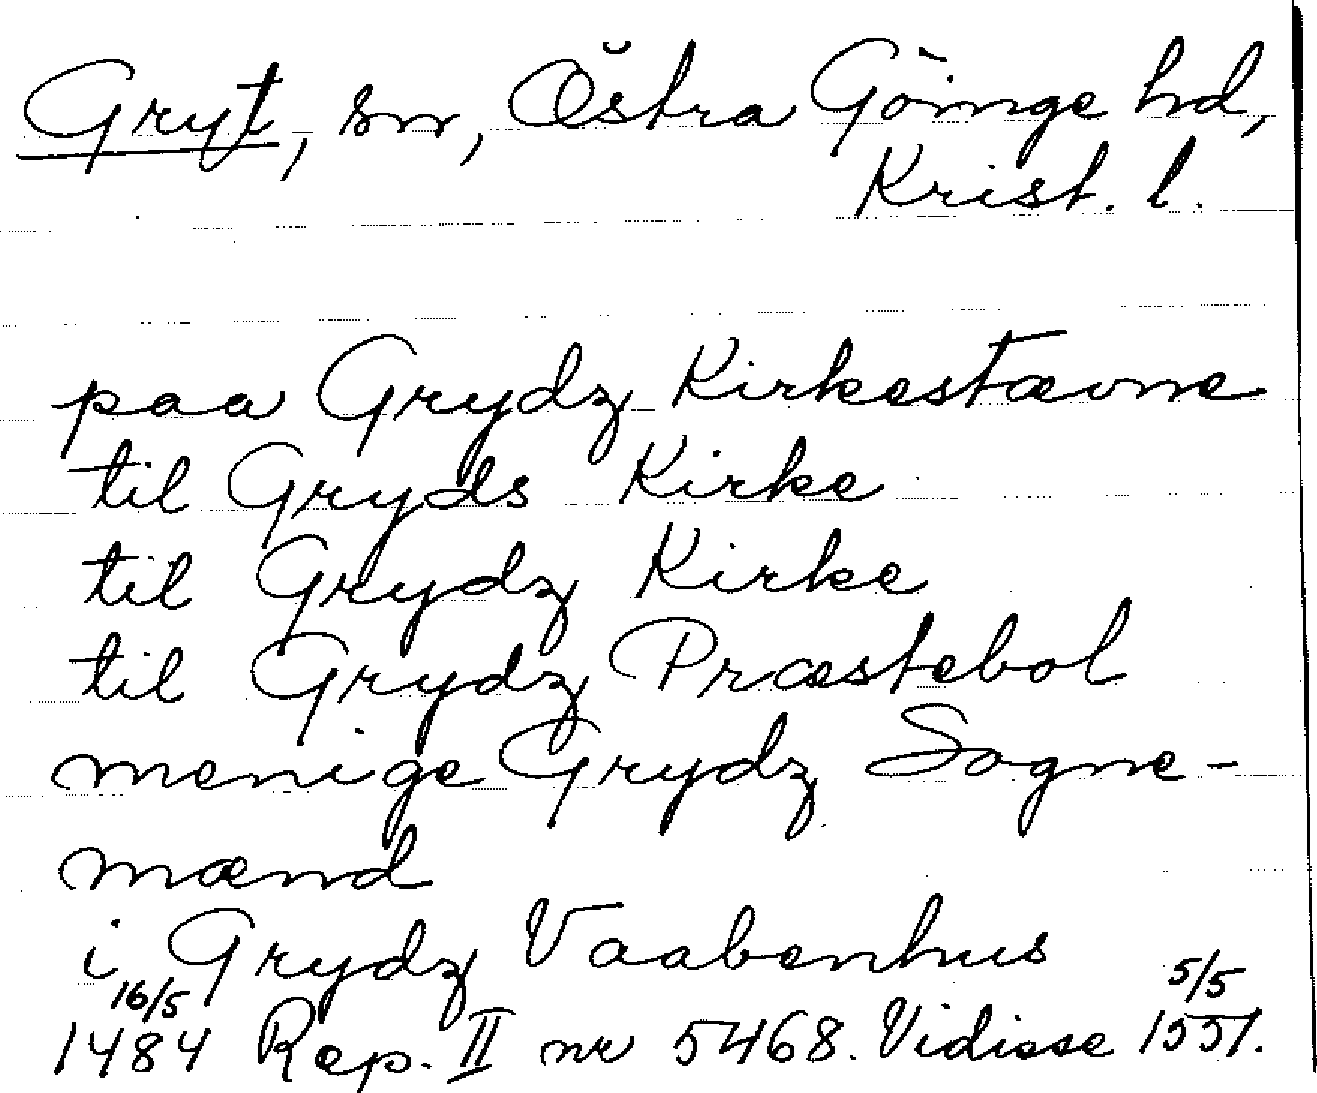 Gryt, sn, Östra Göinge hd,
Krist. l.
paa Grydz Kirkestævne
til Gryds Kirke
til Grydz Kirke
til Grydz Præstebol
menige Grydz Sogne-
mænd
i Grydz Vaabenhus
16/5 5/5
1484 Rep. II nr 5468. Vidisse 1551.